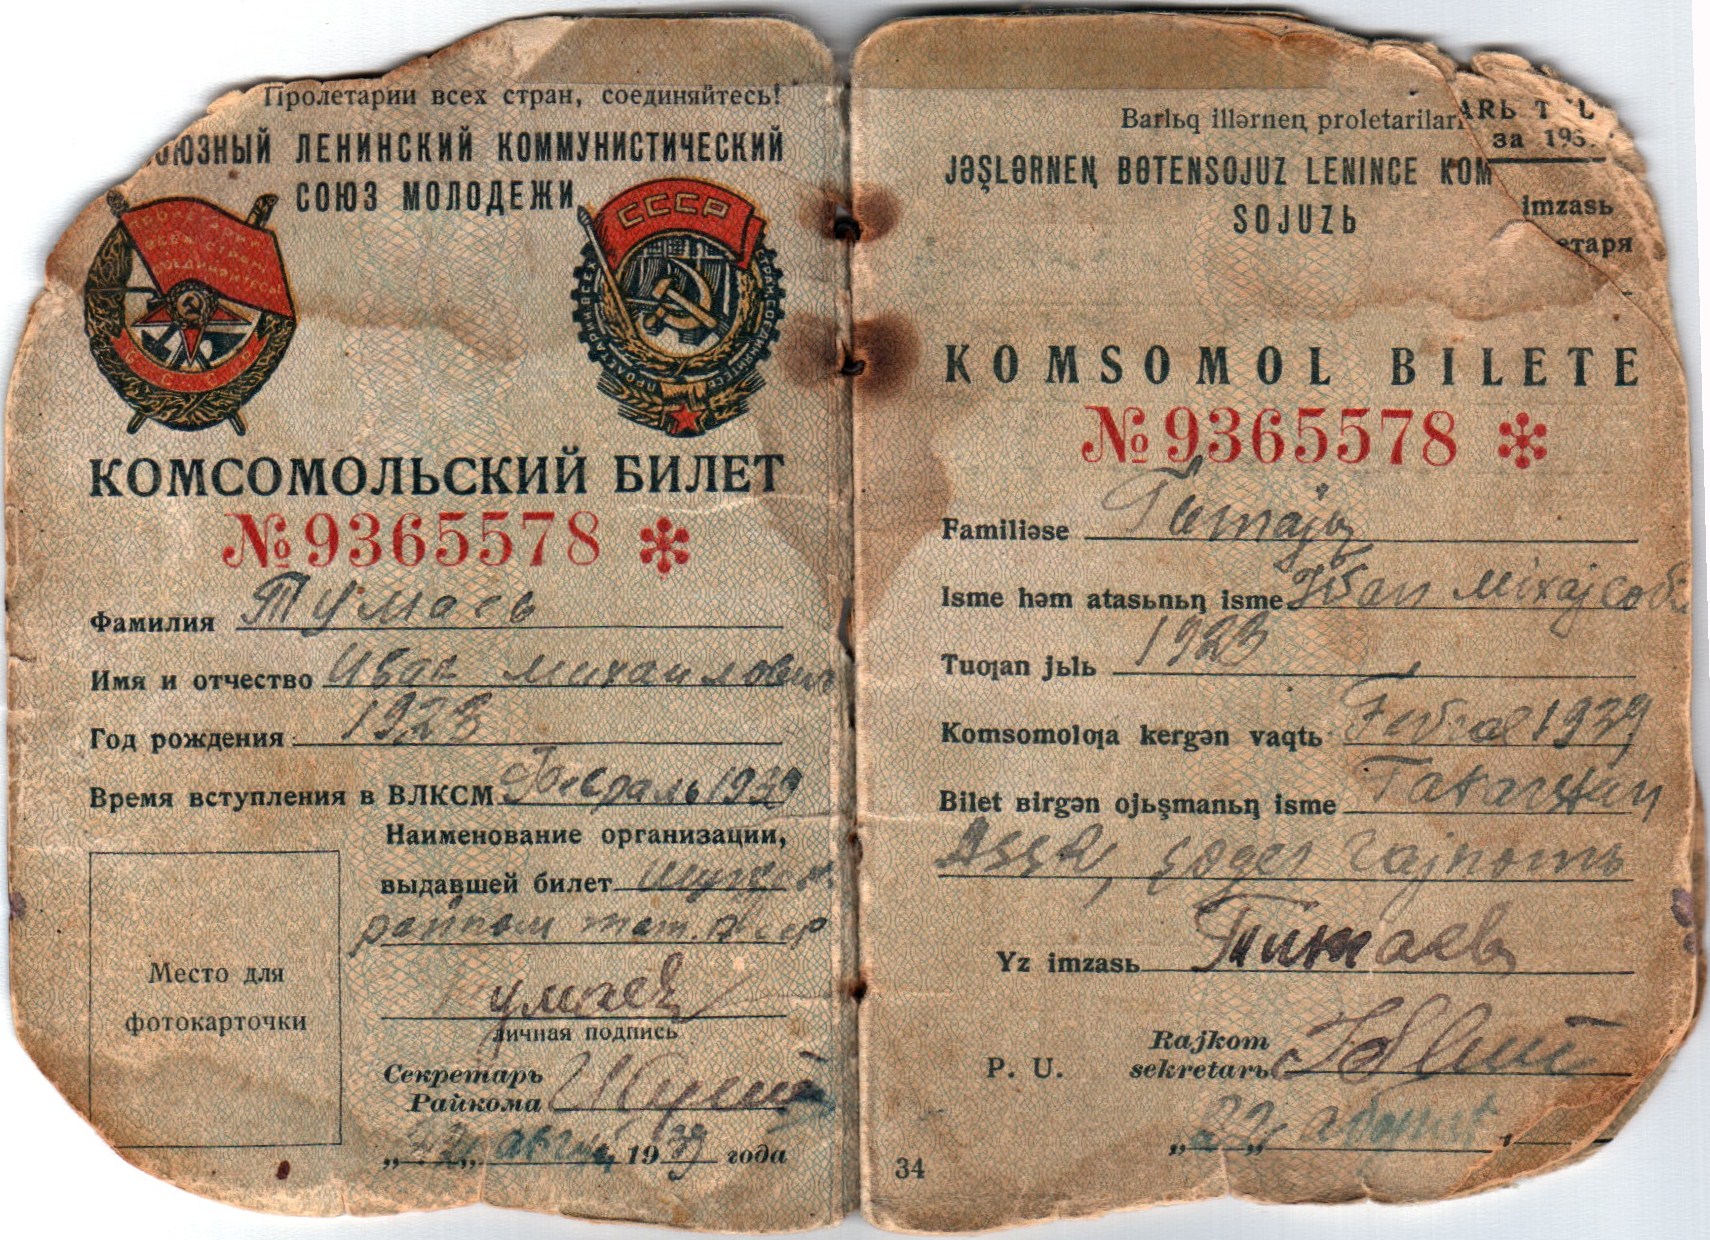 Пролетарии всех стран, соединяйтесь!
ОЮЗНЫЙ ЛЕНИНСКИЙ КОММУНИСТИЧЕСКИЙ
СОЮЗ МОЛОДЕЖИ
СССР
КОМСОМОЛЬСКИЙ БИЛЕТ
№ 9365578 *
Фамилия Тумаев
Имя и отчество Иван Михаилович
Год рождения 1923
Время вступления в ВЛКСМ Февраль 1939
Наименование организации,
выдавшей билет
райком тат. АССР
Место для
фотокарточки
Тумаев
личная подпись
Секретарь
Райкома
„22„ август 1939 года
Barlьq illərneꞑ proletarilar
JƏŞLƏRNEꞐ BƟTENSOJUZ LENINCE KOM
SOJUZЬ
ARЬ T
за 193
imzasь
етаря
KOMSOMOL BILETE
№ 9365578 *
Familiəse Tumajıv
Isme həm atasьnьꞑ isme Ivan Mixajlovic
Tuƣan jьlь 1923
Komsomolƣa kergən vaqtь Fevral 1939
Bilet ʙirgən ojьşmanьꞑ isme Tatarstan
ASSR, rajkomь
Yz imzasь Тумаев
P. U.
Rajkom
sekretarь
„22„ август
34